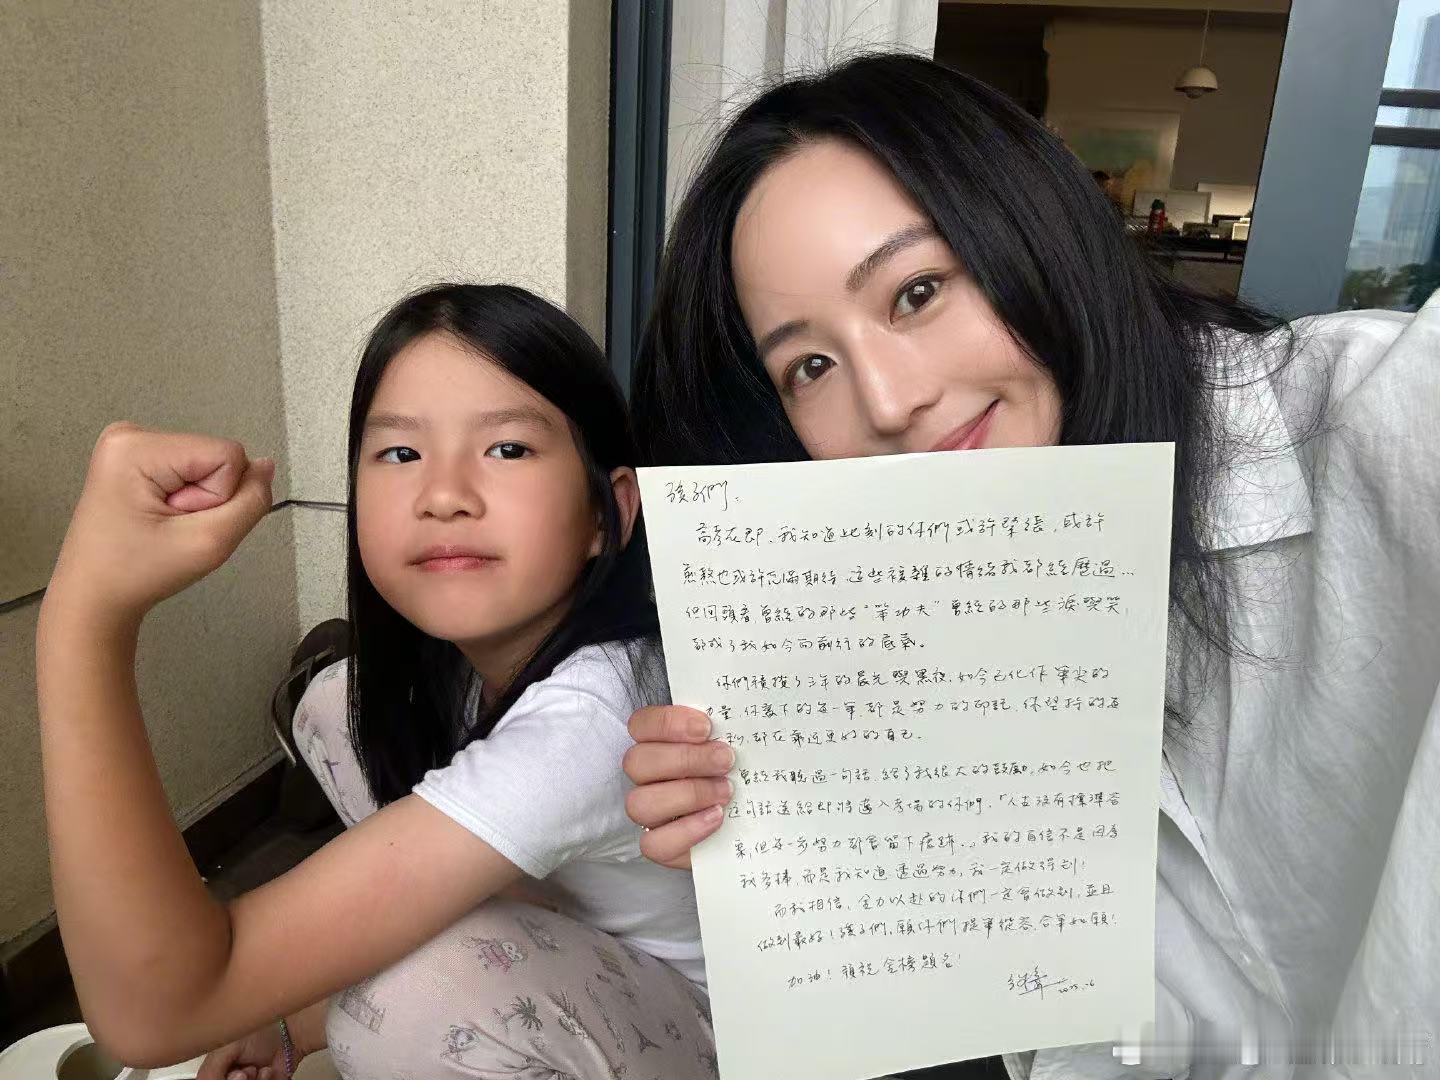 孩子們：
高考在即，我知道此刻的你們或許緊張，或許
煎熬也或許充滿期待，這些複雜的情緒我都經歷過…
但回頭看，曾經的那些“笨功夫”曾經的那些淚與笑，
都成了我如今向前行的底氣。
你們積攢了三年的晨光與黑夜，如今已化作筆尖的
力量，你寫下的每一筆，都是努力的印記，你堅持的每
一秒，都在靠近更好的自己。
曾經我聽過一句話，給了我很大的鼓勵，如今也把
這句話送給即將進入考場的你們，「人生沒有標準答
案，但每一步努力都會留下痕跡。」我的自信不是因為
我多棒，而是我知道透過努力，我一定做得到！
而我相信，全力以赴的你們一定會做到，並且
做到最好！孩子們，願你們提筆從容，合筆如願！
加油！預祝金榜題名！
2025.6